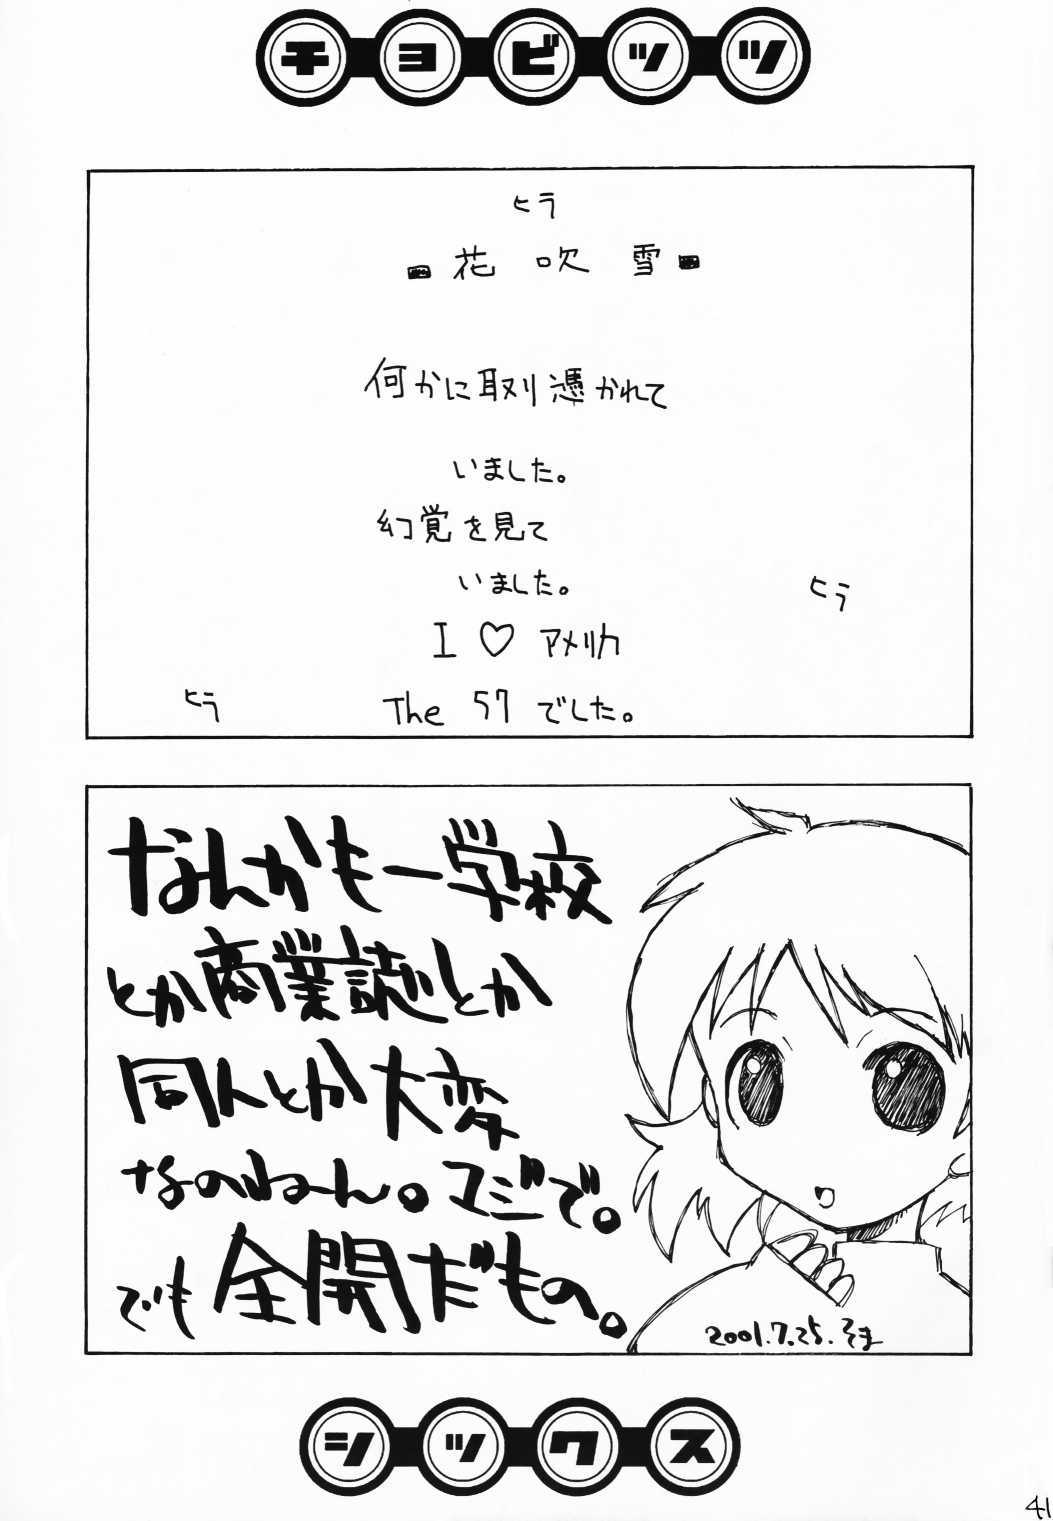 チョビッツ
ヒラ
花吹雪
何かに取り憑かれて
いました。
幻覚を見て
いました。
ヒラ
I ♡ アメリカ
ヒラ
The 57 でした。
なんかもー学校
とか商業誌とか
同人とか大変
なのねーん。マジで。
でも全開だもの。
2001.7.25.そま
シックス
41